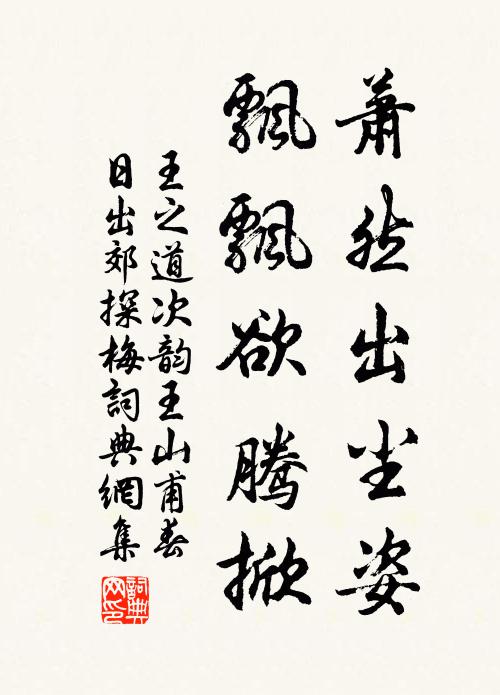 蕭然出尘姿
飄飄欲騰掀
王之道次韵王山甫春
日出郊探梅詞典網集
詞典网印